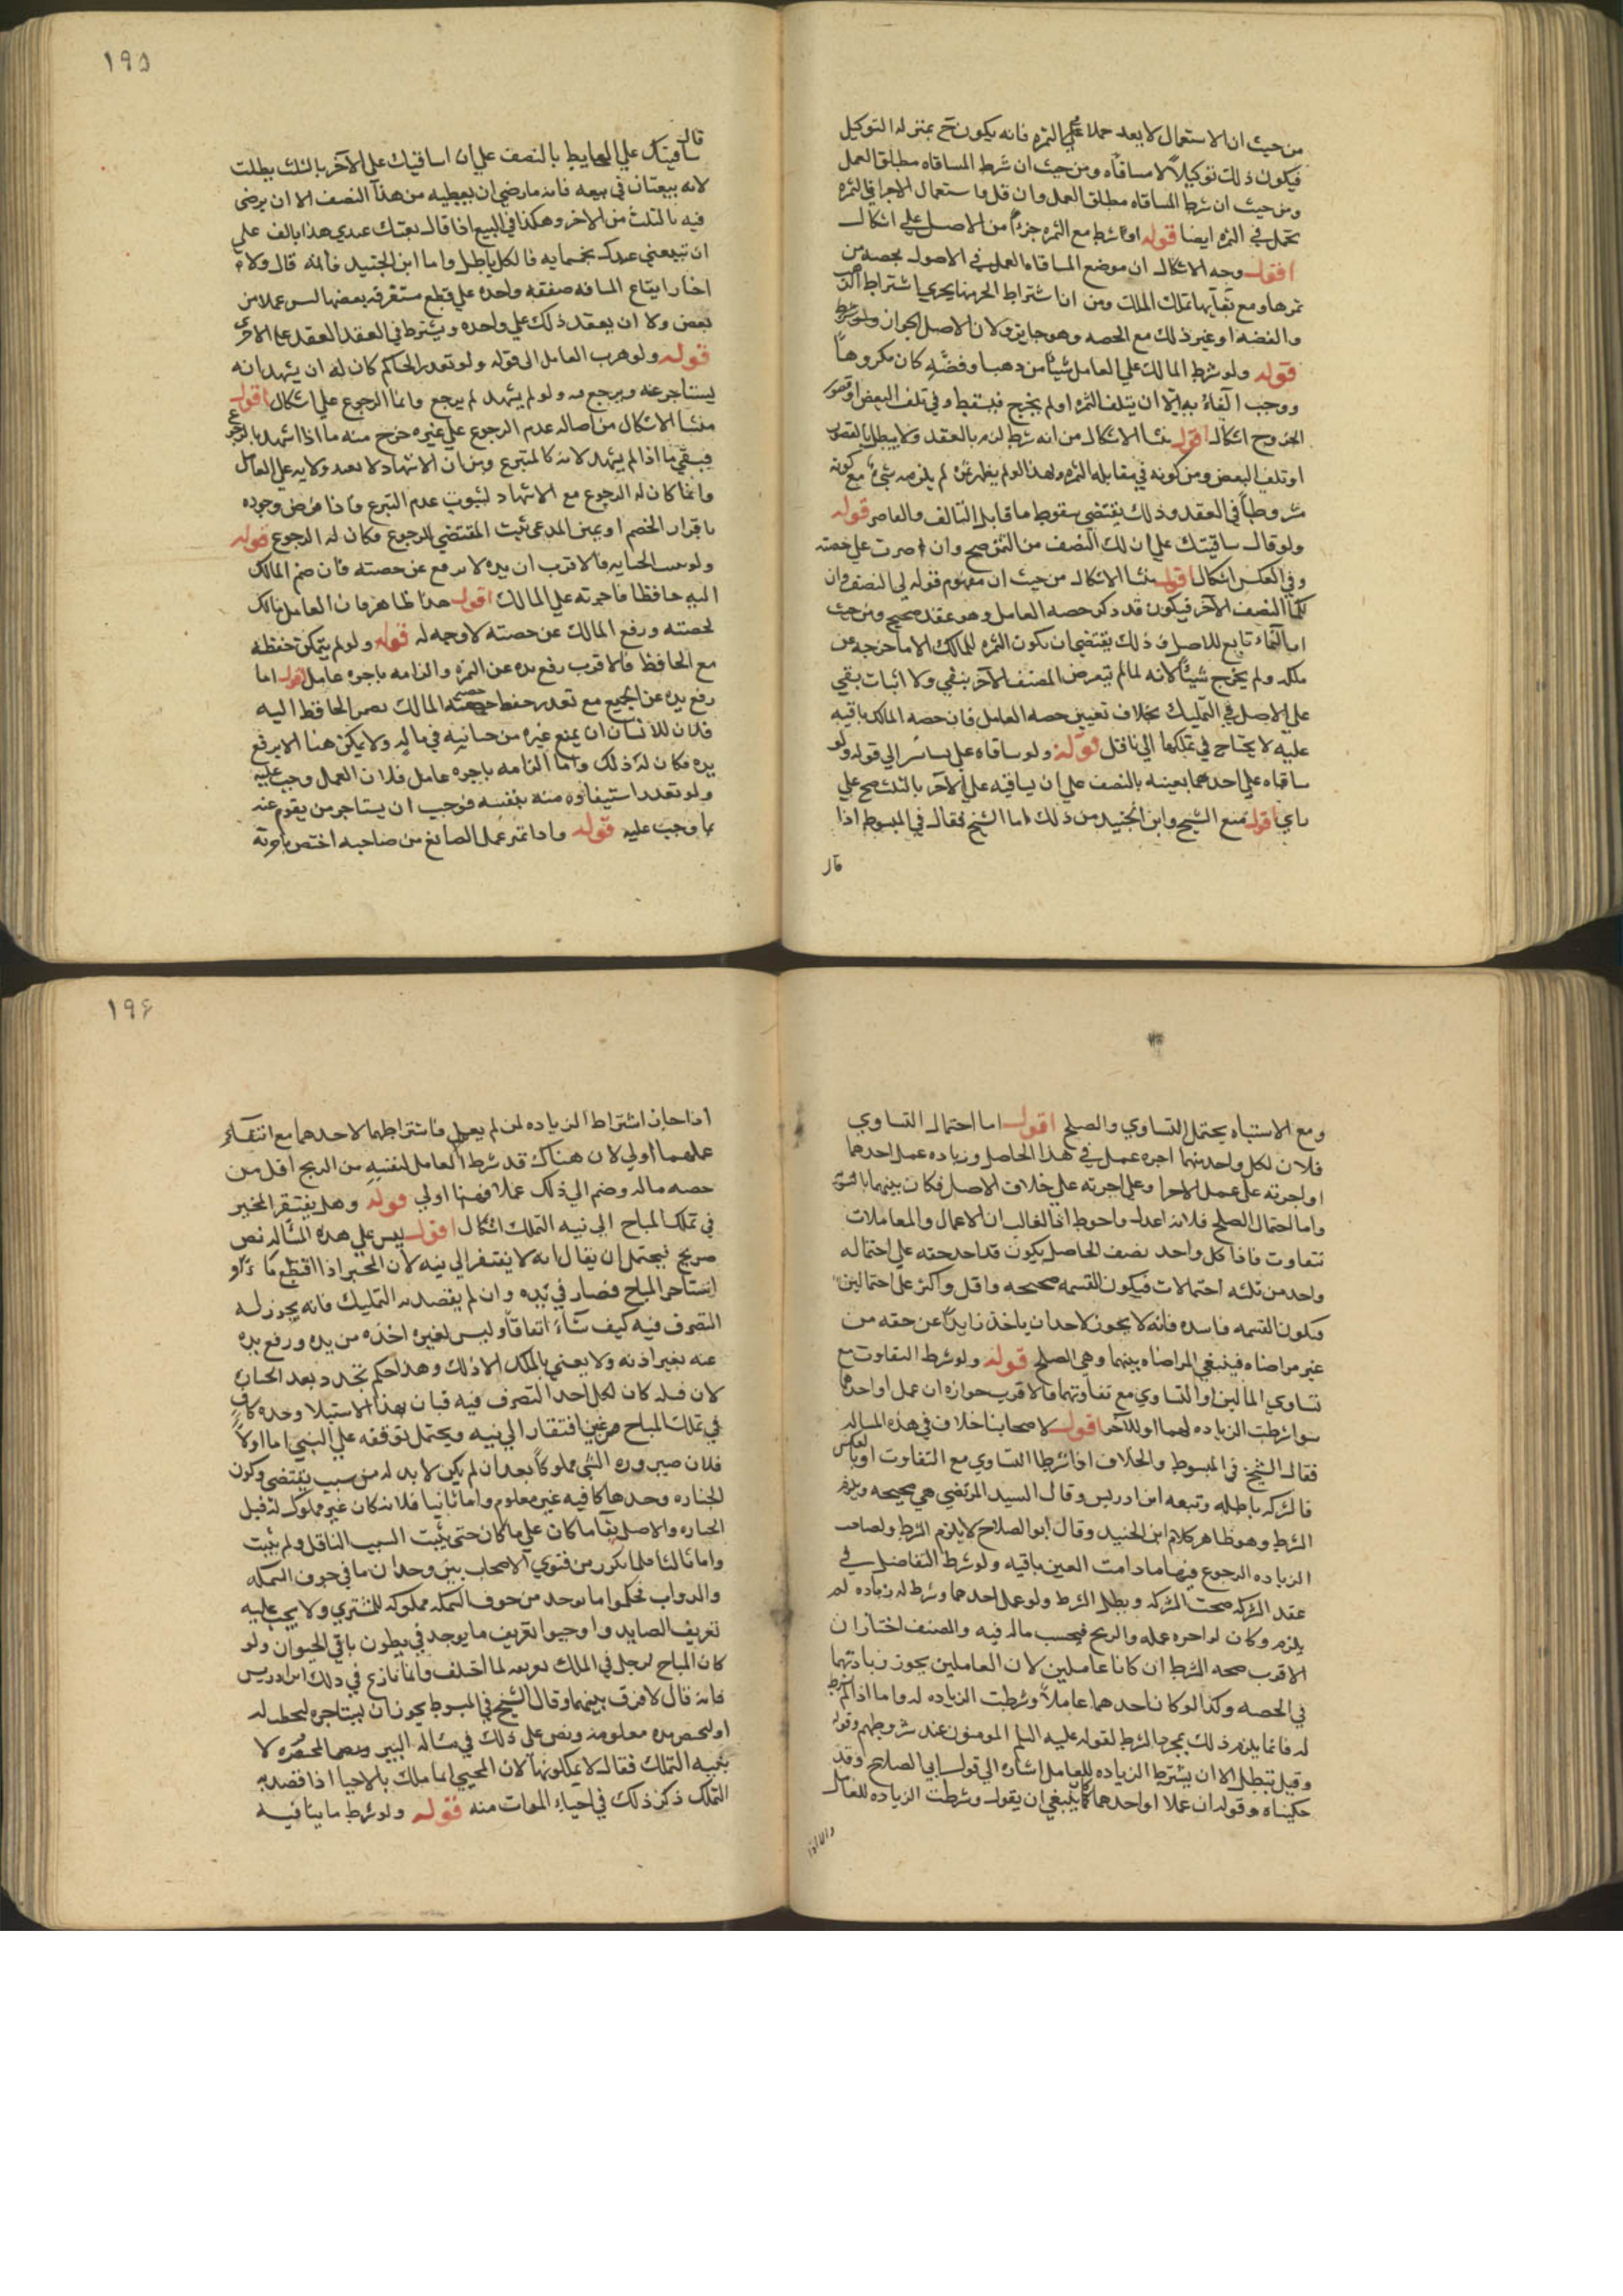 من حيث ان الاستعمال لا بعد حملا علي الثمره فانه يكون ح بمنزله التوكيل
فيكون ذلك توكيلاً لا مساقاه ومن حيث ان شرط المساقاه مطلق العمل
ومن حيث ان شرط المساقاه مطلق العمل وان قل واستعمال الاجرا في الثمره
تحمل في الثمره ايضا قوله او شرط مع الثمره جزءا من الاصل علي اشكال
اقول وجه الاشكال ان موضع المساقاه العمل في الاصول بحصه من
ثمرها ومع بقآيها تملك الملك ومن ان اشتراط الجزء منها يجري اشتراط الذهب
والفضه او غير ذلك مع الحصه وهو جايز ولان الاصل الجواز ولو شرط
قوله ولو شرط المالك علي العامل شيئا من ذهب او فضه كان مكروهاً
ووجب الوفاء به الا ان يتلف الثمره او لم يخرج فيسقط وفي تلف البعض او قصور
الخروج اشكال اقول منشا الاشكال من انه شرط لزم بالعقد ولا يبطل بالقصور
او تلف البعض ومن كونه في مقابله الثمره ولهذا لو لم يظهر ثمره لم يلزمه شيء مع كونه
مشروطاً في العقد وذلك يقتضي سقوط ما قابل التالف والقاصر قوله
ولو قال ساقيتك علي ان لك النصف من الثمره صح وان اقتصرت علي حصته
وفي العكس اشكال اقول منشا الاشكال من حيث ان مفهوم قوله لي النصف وان
لك النصف الآخر فيكون قد ذكر حصه العامل وهو عقد صحيح ومن حيث
ان النماء تابع للاصل وذلك يقتضي ان يكون الثمره للمالك الا ما خرج عن
ملكه ولم يخرج شيئاً لانه لما لم يتعرض للنصف الآخر بنفي ولا اثبات بقي
علي الاصل في التمليك بخلاف تعيين حصه العامل فان حصه المالك باقيه
عليه لا يحتاج في تملكها الي ناقل قوله ولو ساقاه علي بساتين الي قوله ولو
ساقاه علي احدهما بعينه بالنصف علي ان يساقيه علي الآخر بالثلث صح علي
راي اقول منع الشيخ وابن الجنيد من ذلك اما الشيخ فقال في المبسوط اذا
قال
١٩٥
قال ساقيتك علي الحايط بالنصف علي ان اساقيك علي الآخر بالثلث بطلت
لانه بيعتان في بيعه فانه ما رضي ان يعطيه من هذا النصف الا ان يرضي
فيه بالثلث من الاخر وهكذا في البيع اذا قال بعتك عبدي هذا بالف علي
ان تبيعني عبدك بخمسمايه فالكل باطل واما ابن الجنيد فانه قال ولا
اختار ايقاع المساقاه صفقه واحده علي قطع متفرقه بعضها عملا من
بعض ولا ان يعقد ذلك علي واحده ويشترط في العقد العقد علي الاخري
قوله ولو هرب العامل الي قوله ولو تعذر الحاكم كان له ان يشهد انه
يستاجر عنه ويرجع به ولو لم يشهد لم يرجع وانما الرجوع علي اشكال اقول
منشا الاشكال من اصاله عدم الرجوع علي غيره خرج منه ما اذا اشهد بالرجوع
فيبقي ما اذا لم يشهد لانه كالمتبرع ومن ان الاشهاد لا يعد ولايه علي العامل
وانما كان له الرجوع مع الاشهاد لثبوت عدم التبرع فاذا فرض وجوده
باقرار الخصم او يمين المدعي ثبت المقتضي للرجوع فكان له الرجوع قوله
ولو الخيانه فالاقرب ان يده لا ترفع عن حصته فان ضم المالك
اليه حافظا فاجرته علي المالك اقول هذا ظاهر فان العامل مالك
لحصته ورفع المالك عن حصته لا وجه له قوله ولو لم يتمكن حفظه
مع الحافظ فالاقرب رفع يده عن الثمره والزامه باجره عامل اقول اما
رفع يده عن الجميع مع تعذر حفظ حصه المالك الحافظ اليه
فلان للانسان ان يمنع غيره من خيانته في ماله ولا يمكن هنا الا برفع
يده فكان له ذلك واما الزامه باجره عامل فلان العمل وجب عليه
ولو تعذر استيفاوه منه بنفسه فوجب ان يستاجر من يقوم عنه
بما وجب عليه قوله واذا تميز عمل الصانع من صاحبه اختص باجرته
ومع الاشتباه يحتمل التساوي والصلح اقول اما احتمال التساوي
فلان لكل واحد منهما اجره عمل في هذا الحاصل وزياده عمل احدهما
او اجرته علي عمل الاخر وعلي اجرته علي خلاف الاصل فكان بينهما بالسويه
واما احتمال الصلح فلانه اعدل واحوط اذ الغالب ان الاعمال والمعاملات
تتفاوت فاذا كل واحد نصف الحاصل يكون قد اخذ حقه علي احتمال
واحد من ثلثه احتمالات فيكون القسمه صحيحه واقل واكثر علي احتمالين
فتكون القسمه فاسده فانه لا يجوز لاحد ان ياخذ زايداً عن حقه من
غير مراضاه فينبغي المراضاه بينهما وهي الصلح قوله ولو شرط التفاوت مع
تساوي المالين او التساوي مع تفاوتهما فالاقرب جوازه ان عمل او احدهما
سوا شرطت الزياده لهما او للآخر اقول لاصحابنا خلاف في هذه المساله
فقال الشيخ في المبسوط والخلاف اذا شرطا التساوي مع التفاوت او بالعكس
فالشركه باطله وتبعه ابن ادريس وقال السيد المرتضي هي صحيحه ويلزم
الشرط وهو ظاهر كلام ابن الجنيد وقال ابو الصلاح لا يلزم الشرط ولصاحب
الزياده الرجوع فيها ما دامت العين باقيه ولو شرط التفاضل في
عقد الشركه صحت الشركه وبطل الشرط ولو عمل احدهما وشرط له زياده لم
يلزم وكان له اجره عمله والربح بحسب ماله فيه والمصنف اختار ان
الاقرب صحه الشرط ان كانا عاملين لان العاملين يجوز زيادتهما
في الحصه وكذا لو كان احدهما عاملاً وشرطت الزياده له واما اذا لم يشرط
له فانما يلزم ذلك بمجرد الشرط لقوله عليه السلم المومنون عند شروطهم وقوله
وقيل تبطل الا ان يشترط الزياده للعامل اشاره الي قول ابي الصلاح وقد
حكيناه وقوله ان عملا او احدهما كان ينبغي ان يقول وشرطت الزياده للعامل
١٩۶
اذا جاز اشتراط الزياده لمن لم يعمل فاشتراطها لاحدهما مع انتفاء
عملهما اولي لان هناك قد شرط العامل لنفسه من الربح اقل من
حصه ماله وضم الي ذلك عملا فههنا اولي قوله وهل يفتقر المخير
في تملك المباح الي نيه التملك اشكال اقول ليس علي هذه المساله نص
صريح فيحتمل ان يقال انه لا يفتقر الي نيه لان المخير اذا اقتطع ماء او
استاجر المباح فصار في يده وان لم يقصد به التمليك فانه يجوز له
التصرف فيه كيف شآء اتفاقاً وليس لغيره اخذه من يده ورفع يده
عنه بغير اذنه ولا يعني بالملك الا ذلك وهذا حكم تجدد بعد الحيازه
لان قبله كان لكل احد التصرف فيه فبان بهذا الاستيلا وحده كاف
في تملك المباح من غير افتقار الي نيه ويحتمل توقفه علي النيه اما اولاً
فلان صيروره الشي مملوكاً بعد ان لم يكن لا بد له من سبب يقتضي وكون
الحيازه وحدها كافيه غير معلوم واما ثانيا فلانه كان غير مملوك له قبل
الحيازه والاصل بقآ ما كان علي ما كان حتي يثبت السبب الناقل ولم يثبت
واما ثالثا فلما تكرر من فتوي الاصحاب بين وجدان ما في جوف السمكه
والدواب فحكموا ما يوجد من جوف السمكه مملوكه للمشتري ولا يجب عليه
تعريف الصايد واوجبوا تعريف ما يوجد في بطون باقي الحيوان ولو
كان المباح يدخل في الملك لما اختلف وانما نازع في ذلك ابن ادريس
فانه قال لا فرق بينهما وقال الشيخ في المبسوط يجوز ان يستاجره ليحتطب له
او يحتش مده معلومه ونص علي ذلك في مساله البير لا
بنيه التملك فقال لا يملكونها لان المحيي انما ملك بالاحيا اذا قصد به
التملك ذكر ذلك في احياء الموات منه قوله ولو شرط ما ينافيه